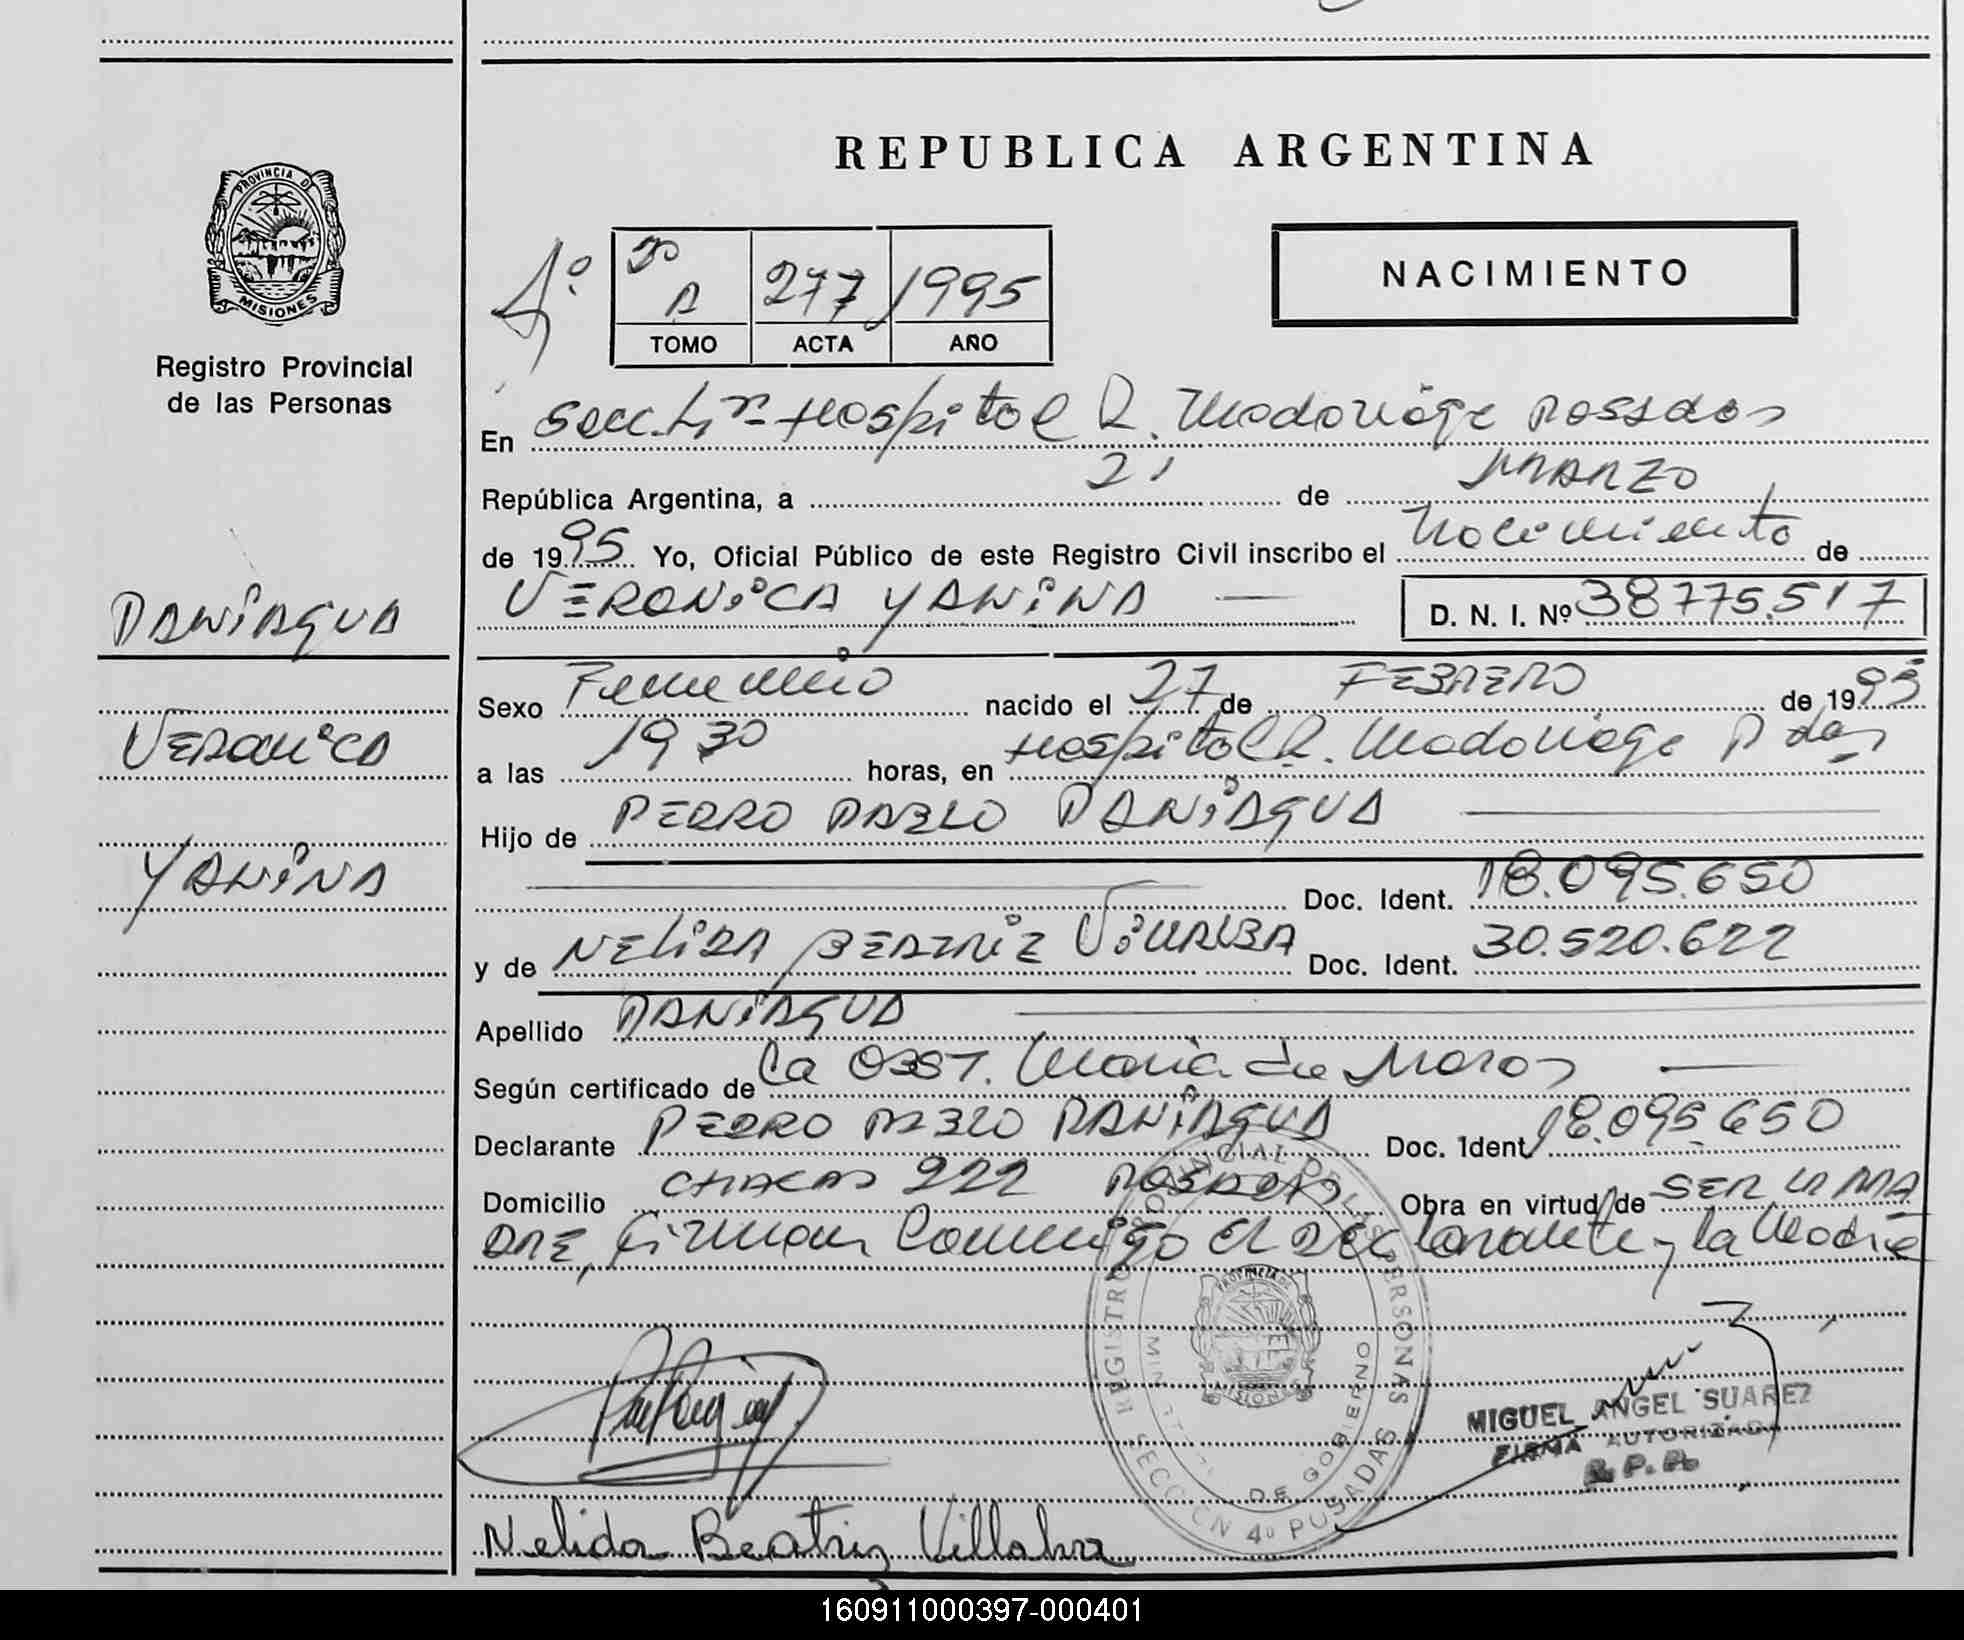 REPUBLICA ARGENTINA
PROVINCIA DE
MISIONES
Registro Provincial
de las Personas
4º
2º
A 277 1995
TOMO ACTA AÑO
NACIMIENTO
En Secc. 4ta Hospital R. Madariaga Posadas
República Argentina, a 21 de MARZO
de 1995 Yo, Oficial Público de este Registro Civil inscribo el Nacimiento de
VERONICA YANINA D. N. I. Nº 38775.517
PANIAGUA
VERONICA
YANINA
Sexo Femenino nacido el 27 de FEBRERO de 1995
a las 19 30 horas, en Hospital R. Madariaga Pdas
Hijo de PEDRO PABLO PANIAGUA
Doc. Ident. 18.095.650
y de NELIDA BEATRIZ VILLALBA Doc. Ident. 30.520.622
Apellido PANIAGUA
Según certificado de la OBST. Maria de
Declarante PEDRO PABLO PANIAGUA Doc. Ident 18.095.650
Domicilio 222 POSADAS Obra en virtud de SER LA MA
DRE, firman conmigo el declarante y la Madre
REGISTRO PROVINCIAL DE LAS PERSONAS
DE GOBIERNO
PROVINCIA DE
MISIONES
SECCION 4º POSADAS
MIGUEL ANGEL SUAREZ
FIRMA AUTORIZADA
R. P. P.
Nelida Beatriz Villalba
160911000397-000401